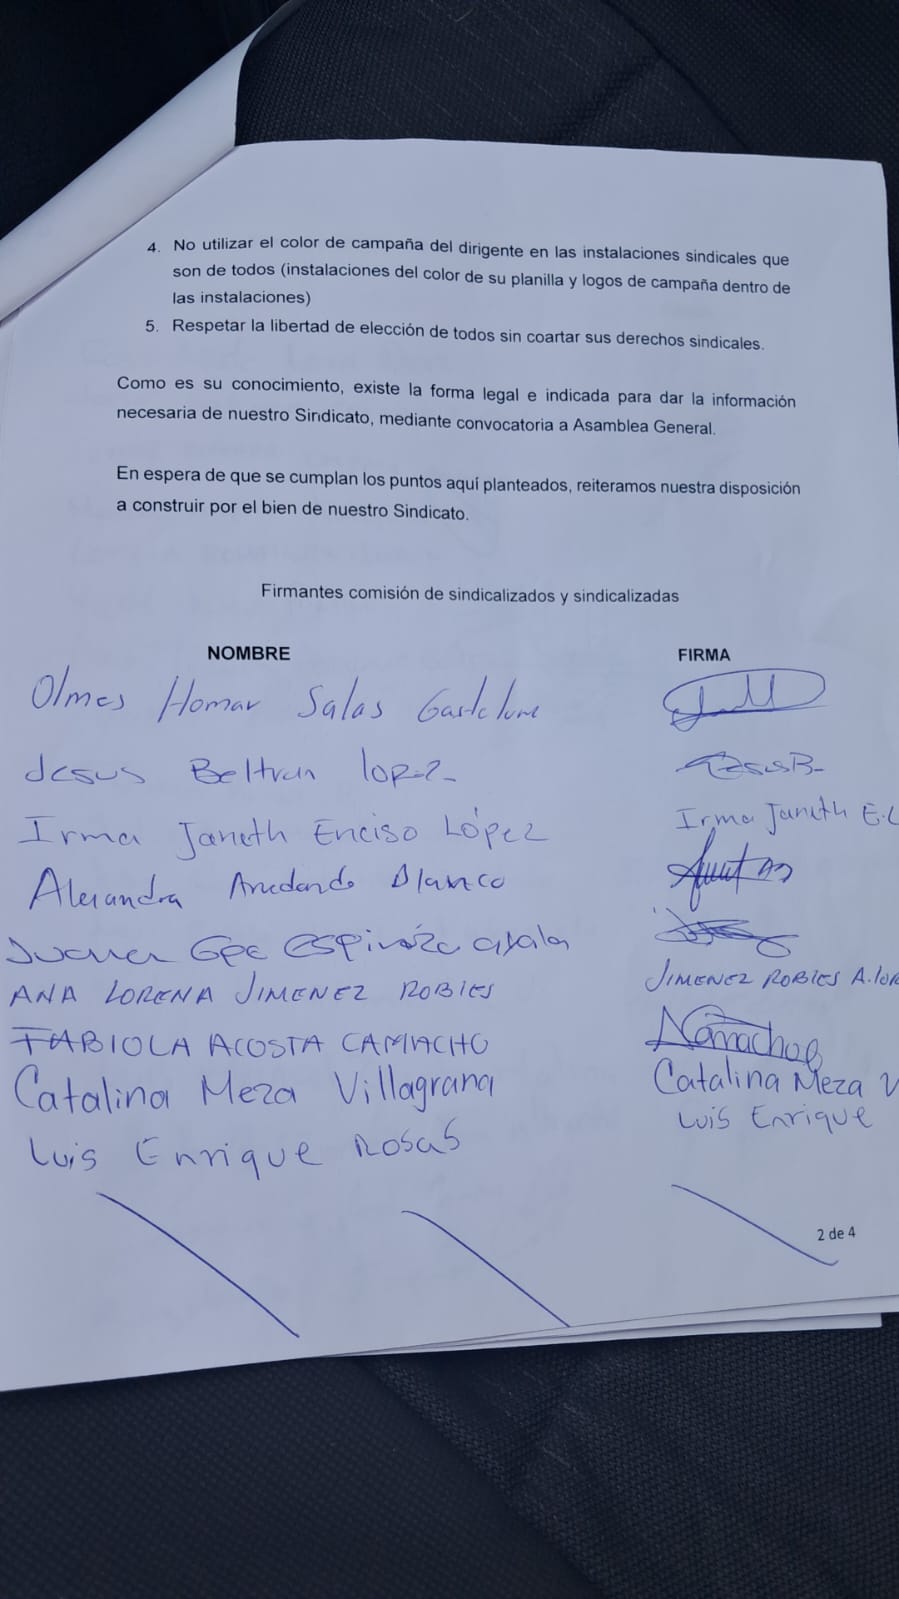 4. No utilizar el color de campaña del dirigente en las instalaciones sindicales que
son de todos (instalaciones del color de su planilla y logos de campaña dentro de
las instalaciones)
5. Respetar la libertad de elección de todos sin coartar sus derechos sindicales.
Como es su conocimiento, existe la forma legal e indicada para dar la información
necesaria de nuestro Sindicato, mediante convocatoria a Asamblea General.
En espera de que se cumplan los puntos aquí planteados, reiteramos nuestra disposición
a construir por el bien de nuestro Sindicato.
Firmantes comisión de sindicalizados y sindicalizadas
NOMBRE FIRMA
Olmes Homar Salas
Jesus Beltran
Irma Janeth Enciso López Irma Janeth E.L
Blanco
Gpe
ANA LORENA JIMENEZ ROBLES JIMENEZ ROBLES A.LOR
FABIOLA ACOSTA CAMACHO
Catalina Meza Villagrana Catalina Meza V
Luis Enrique Rosas Luis Enrique
2 de 4